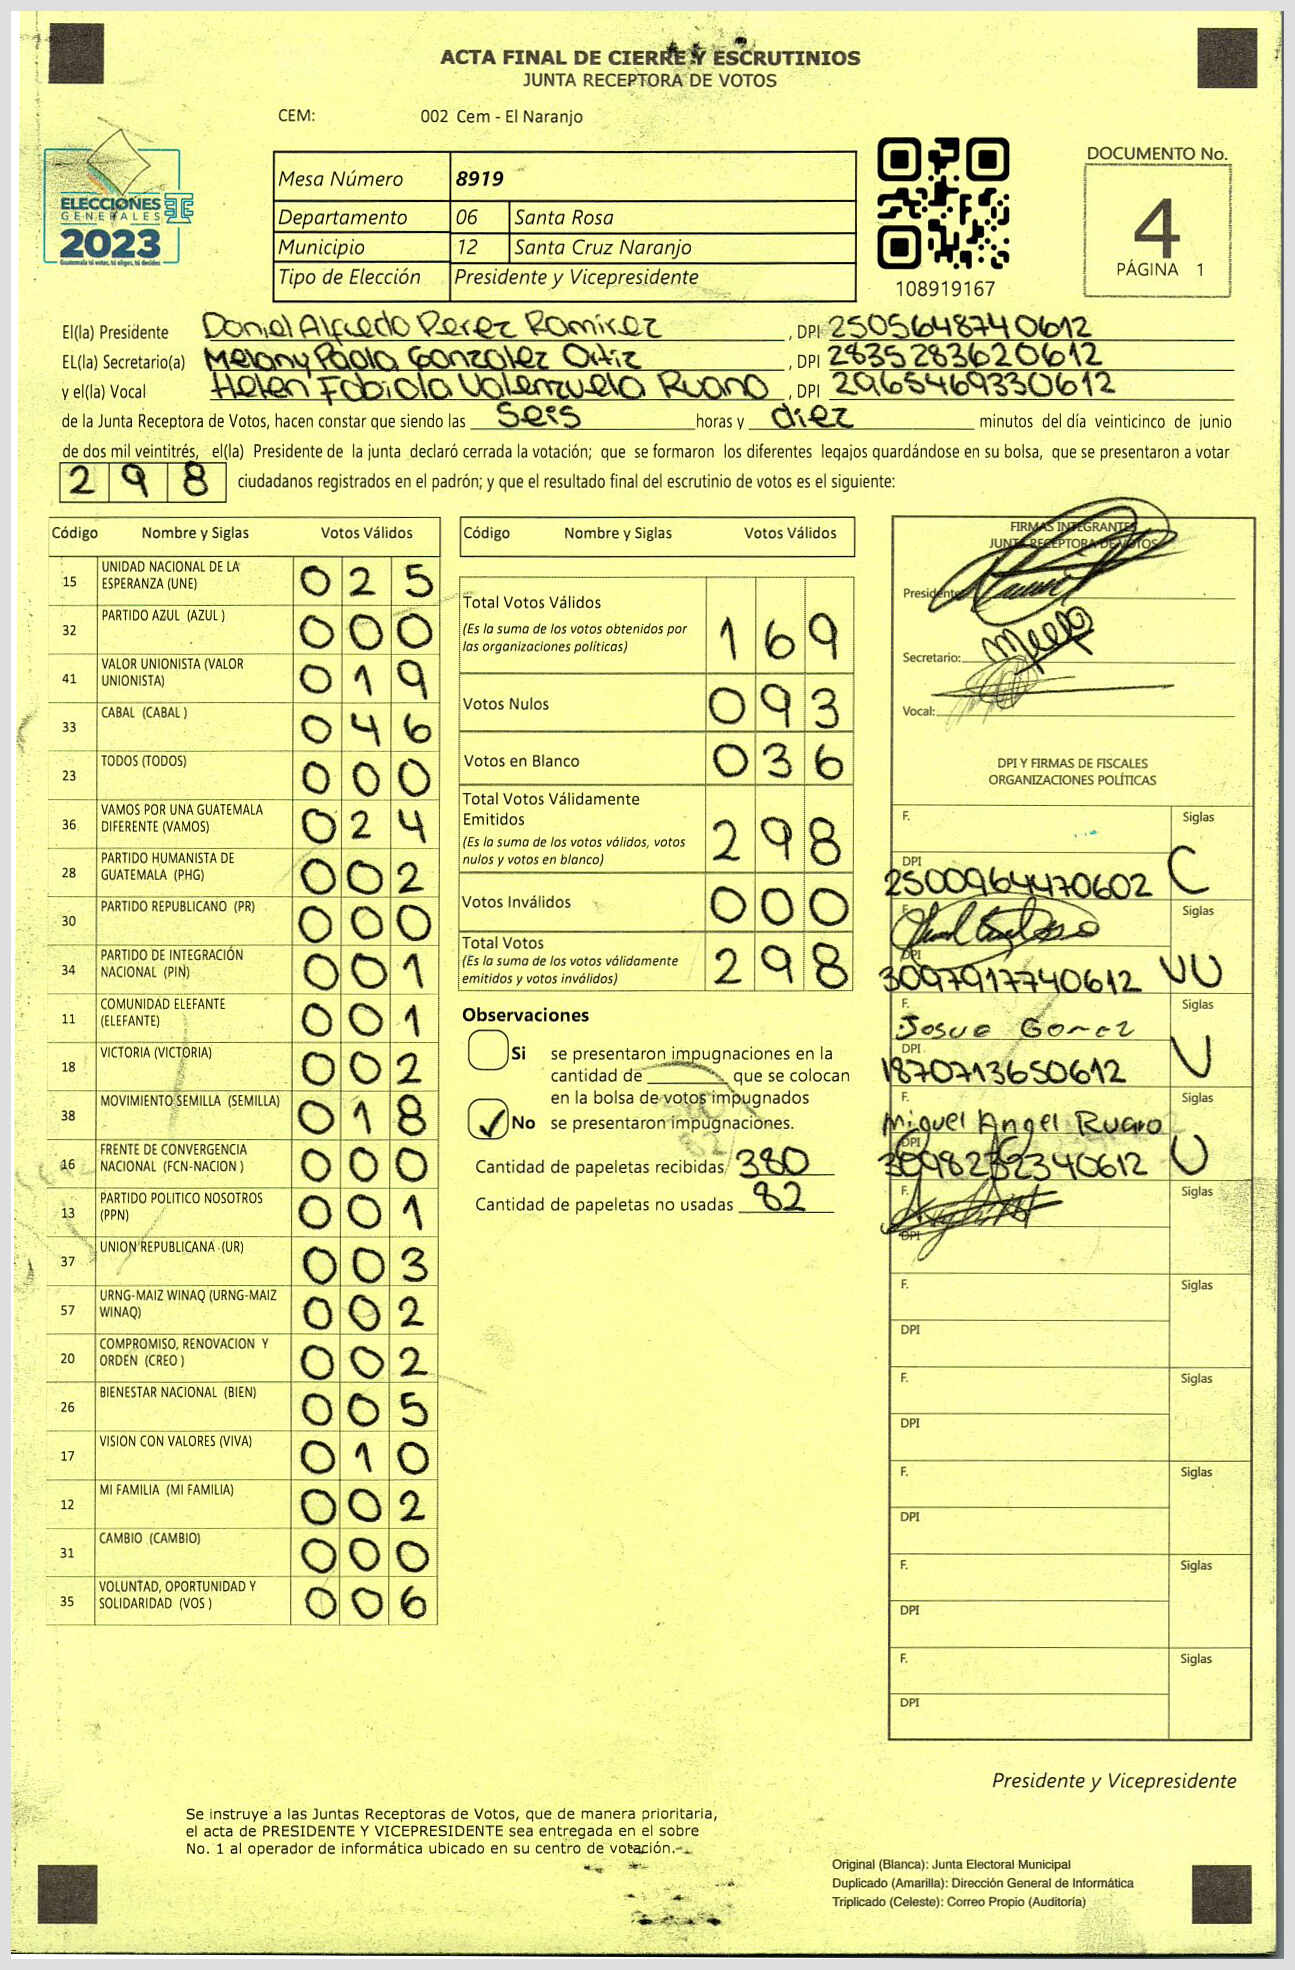 ACTA FINAL DE CIERRE Y ESCRUTINIOS
JUNTA RECEPTORA DE VOTOS
CEM: 002 Cem - El Naranjo
ELECCIONES
GENERALES
2023
Guatemala tú votas, tú eliges, tú decides
Mesa Número 8919
Departamento 06 Santa Rosa
Municipio 12 Santa Cruz Naranjo
Tipo de Elección Presidente y Vicepresidente
108919167
DOCUMENTO No.
4
PÁGINA 1
El(la) Presidente Daniel Alfredo Perez Ramirez , DPI 2505648740612
EL(la) Secretario(a) Melany Paola Gonzalez Ortiz , DPI 2835283620612
y el(la) Vocal Helen Fabiola Valenzuela Ruano , DPI 2965469330612
de la Junta Receptora de Votos, hacen constar que siendo las seis horas y diez minutos del día veinticinco de junio
de dos mil veintitrés, el(la) Presidente de la junta declaró cerrada la votación; que se formaron los diferentes legajos quardándose en su bolsa, que se presentaron a votar
298 ciudadanos registrados en el padrón; y que el resultado final del escrutinio de votos es el siguiente:
Código Nombre y Siglas Votos Válidos
15 UNIDAD NACIONAL DE LA ESPERANZA (UNE) 025
32 PARTIDO AZUL (AZUL ) 000
41 VALOR UNIONISTA (VALOR UNIONISTA) 019
33 CABAL (CABAL ) 046
23 TODOS (TODOS) 000
36 VAMOS POR UNA GUATEMALA DIFERENTE (VAMOS) 024
28 PARTIDO HUMANISTA DE GUATEMALA (PHG) 002
30 PARTIDO REPUBLICANO (PR) 000
34 PARTIDO DE INTEGRACIÓN NACIONAL (PIN) 001
11 COMUNIDAD ELEFANTE (ELEFANTE) 001
18 VICTORIA (VICTORIA) 002
38 MOVIMIENTO SEMILLA (SEMILLA) 018
16 FRENTE DE CONVERGENCIA NACIONAL (FCN-NACION ) 000
13 PARTIDO POLITICO NOSOTROS (PPN) 001
37 UNION REPUBLICANA (UR) 003
57 URNG-MAIZ WINAQ (URNG-MAIZ WINAQ) 002
20 COMPROMISO, RENOVACION Y ORDEN (CREO ) 002
26 BIENESTAR NACIONAL (BIEN) 005
17 VISION CON VALORES (VIVA) 010
12 MI FAMILIA (MI FAMILIA) 002
31 CAMBIO (CAMBIO) 000
35 VOLUNTAD, OPORTUNIDAD Y SOLIDARIDAD (VOS ) 006
Código Nombre y Siglas Votos Válidos
Total Votos Válidos 169
(Es la suma de los votos obtenidos por las organizaciones políticas)
Votos Nulos 093
Votos en Blanco 036
Total Votos Válidamente Emitidos 298
(Es la suma de los votos válidos, votos nulos y votos en blanco)
Votos Inválidos 000
Total Votos 298
(Es la suma de los votos válidamente emitidos y votos inválidos)
Observaciones
Si se presentaron impugnaciones en la
cantidad de ______ que se colocan
en la bolsa de votos impugnados
No se presentaron impugnaciones.
Cantidad de papeletas recibidas 380
Cantidad de papeletas no usadas 82
FIRMAS INTEGRANTES
JUNTA RECEPTORA DE VOTOS
Presidente:
Secretario:
Vocal:
DPI Y FIRMAS DE FISCALES
ORGANIZACIONES POLÍTICAS
F. Siglas
DPI 2500964470602 C
F. Siglas
DPI 3097917740612 VU
F. Josue Gomez Siglas
DPI 1870713650612 V
F. Miguel Angel Ruano Siglas
DPI U
F. Siglas
DPI
F. Siglas
DPI
F. Siglas
DPI
F. Siglas
DPI
F. Siglas
DPI
F. Siglas
DPI
Presidente y Vicepresidente
Se instruye a las Juntas Receptoras de Votos, que de manera prioritaria,
el acta de PRESIDENTE Y VICEPRESIDENTE sea entregada en el sobre
No. 1 al operador de informática ubicado en su centro de votación.
Original (Blanca): Junta Electoral Municipal
Duplicado (Amarilla): Dirección General de Informática
Triplicado (Celeste): Correo Propio (Auditoría)